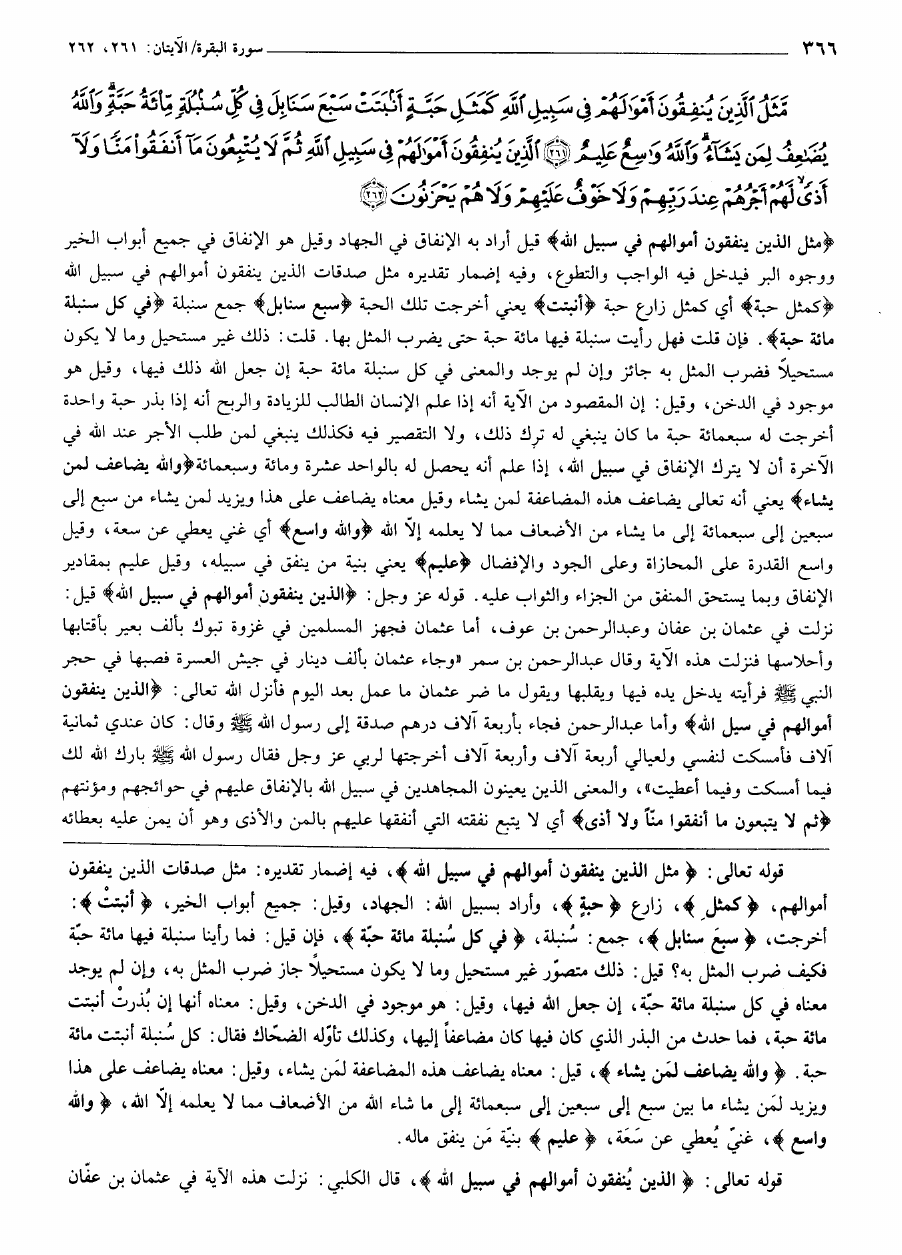 ٣٦٦ سورة البقرة/ الآيتان: ٢٦١، ٢٦٢
مَّثَلُ ٱلَّذِينَ يُنفِقُونَ أَمْوَٰلَهُمْ فِى سَبِيلِ ٱللَّهِ كَمَثَلِ حَبَّةٍ أَنۢبَتَتْ سَبْعَ سَنَابِلَ فِى كُلِّ سُنۢبُلَةٍ مِّا۟ئَةُ حَبَّةٍ ۗ وَٱللَّهُ
يُضَٰعِفُ لِمَن يَشَآءُ ۗ وَٱللَّهُ وَٰسِعٌ عَلِيمٌ ﴿٢٦١﴾ ٱلَّذِينَ يُنفِقُونَ أَمْوَٰلَهُمْ فِى سَبِيلِ ٱللَّهِ ثُمَّ لَا يُتْبِعُونَ مَآ أَنفَقُوا۟ مَنًّا وَلَآ
أَذًى ۙ لَّهُمْ أَجْرُهُمْ عِندَ رَبِّهِمْ وَلَا خَوْفٌ عَلَيْهِمْ وَلَا هُمْ يَحْزَنُونَ ﴿٢٦٢﴾
﴿مثل الذين ينفقون أموالهم في سبيل الله﴾ قيل أراد به الإنفاق في الجهاد وقيل هو الإنفاق في جميع أبواب الخير
ووجوه البر فيدخل فيه الواجب والتطوع، وفيه إضمار تقديره مثل صدقات الذين ينفقون أموالهم في سبيل الله
﴿كمثل حبة﴾ أي كمثل زارع حبة ﴿أنبتت﴾ يعني أخرجت تلك الحبة ﴿سبع سنابل﴾ جمع سنبلة ﴿في كل سنبلة
مائة حبة﴾. فإن قلت فهل رأيت سنبلة فيها مائة حبة حتى يضرب المثل بها. قلت: ذلك غير مستحيل وما لا يكون
مستحيلاً فضرب المثل به جائز وإن لم يوجد والمعنى في كل سنبلة مائة حبة إن جعل الله ذلك فيها، وقيل هو
موجود في الدخن، وقيل: إن المقصود من الآية أنه إذا علم الإنسان الطالب للزيادة والربح أنه إذا بذر حبة واحدة
أخرجت له سبعمائة حبة ما كان ينبغي له ترك ذلك، ولا التقصير فيه فكذلك ينبغي لمن طلب الأجر عند الله في
الآخرة أن لا يترك الإنفاق في سبيل الله، إذا علم أنه يحصل له بالواحد عشرة ومائة وسبعمائة﴿والله يضاعف لمن
يشاء﴾ يعني أنه تعالى يضاعف هذه المضاعفة لمن يشاء وقيل معناه يضاعف على هذا ويزيد لمن يشاء من سبع إلى
سبعين إلى سبعمائة إلى ما يشاء من الأضعاف مما لا يعلمه إلاّ الله ﴿والله واسع﴾ أي غني يعطي عن سعة، وقيل
واسع القدرة على المحازاة وعلى الجود والإفضال ﴿عليم﴾ يعني بنية من ينفق في سبيله، وقيل عليم بمقادير
الإنفاق وبما يستحق المنفق من الجزاء والثواب عليه. قوله عز وجل: ﴿الذين ينفقون أموالهم في سبيل الله﴾ قيل:
نزلت في عثمان بن عفان وعبدالرحمن بن عوف، أما عثمان فجهز المسلمين في غزوة تبوك بألف بعير بأقتابها
وأحلاسها فنزلت هذه الآية وقال عبدالرحمن بن سمر «وجاء عثمان بألف دينار في جيش العسرة فصبها في حجر
النبي ﷺ فرأيته يدخل يده فيها ويقلبها ويقول ما ضر عثمان ما عمل بعد اليوم فأنزل الله تعالى: ﴿الذين ينفقون
أموالهم في سيل الله﴾ وأما عبدالرحمن فجاء بأربعة آلاف درهم صدقة إلى رسول الله ﷺ وقال: كان عندي ثمانية
آلاف فأمسكت لنفسي ولعيالي أربعة آلاف وأربعة آلاف أخرجتها لربي عز وجل فقال رسول الله ﷺ بارك الله لك
فيما أمسكت وفيما أعطيت»، والمعنى الذين يعينون المجاهدين في سبيل الله بالإنفاق عليهم في حوائجهم ومؤنتهم
﴿ثم لا يتبعون ما أنفقوا منّاً ولا أذى﴾ أي لا يتبع نفقته التي أنفقها عليهم بالمن والأذى وهو أن يمن عليه بعطائه
قوله تعالى: ﴿ مثل الذين ينفقون أموالهم في سبيل الله ﴾، فيه إضمار تقديره: مثل صدقات الذين ينفقون
أموالهم، ﴿ كمثل ﴾، زارع ﴿ حبةٍ ﴾، وأراد بسبيل الله: الجهاد، وقيل: جميع أبواب الخير، ﴿ أنبتتْ ﴾:
أخرجت، ﴿ سبعَ سنابل ﴾، جمع: سُنبلة، ﴿ في كل سُنبلة مائة حبّة ﴾، فإن قيل: فما رأينا سنبلة فيها مائة حبّة
فكيف ضرب المثل به؟ قيل: ذلك متصوّر غير مستحيل وما لا يكون مستحيلاً جاز ضرب المثل به، وإن لم يوجد
معناه في كل سنبلة مائة حبّة، إن جعل الله فيها، وقيل: هو موجود في الدخن، وقيل: معناه أنها إن بُذرتْ أنبتت
مائة حبة، فما حدث من البذر الذي كان فيها كان مضاعفاً إليها، وكذلك تأوّله الضحّاك فقال: كل سُنبلة أنبتت مائة
حبة. ﴿ والله يضاعف لمَن يشاء ﴾، قيل: معناه يضاعف هذه المضاعفة لمَن يشاء، وقيل: معناه يضاعف على هذا
ويزيد لمَن يشاء ما بين سبع إلى سبعين إلى سبعمائة إلى ما شاء الله من الأضعاف مما لا يعلمه إلاّ الله، ﴿ والله
واسع ﴾، غنيّ يُعطي عن سَعَة، ﴿ عليم ﴾ بنيّة مَن ينفق ماله.
قوله تعالى: ﴿ الذين يُنفقون أموالهم في سبيل الله ﴾، قال الكلبي: نزلت هذه الآية في عثمان بن عفّان